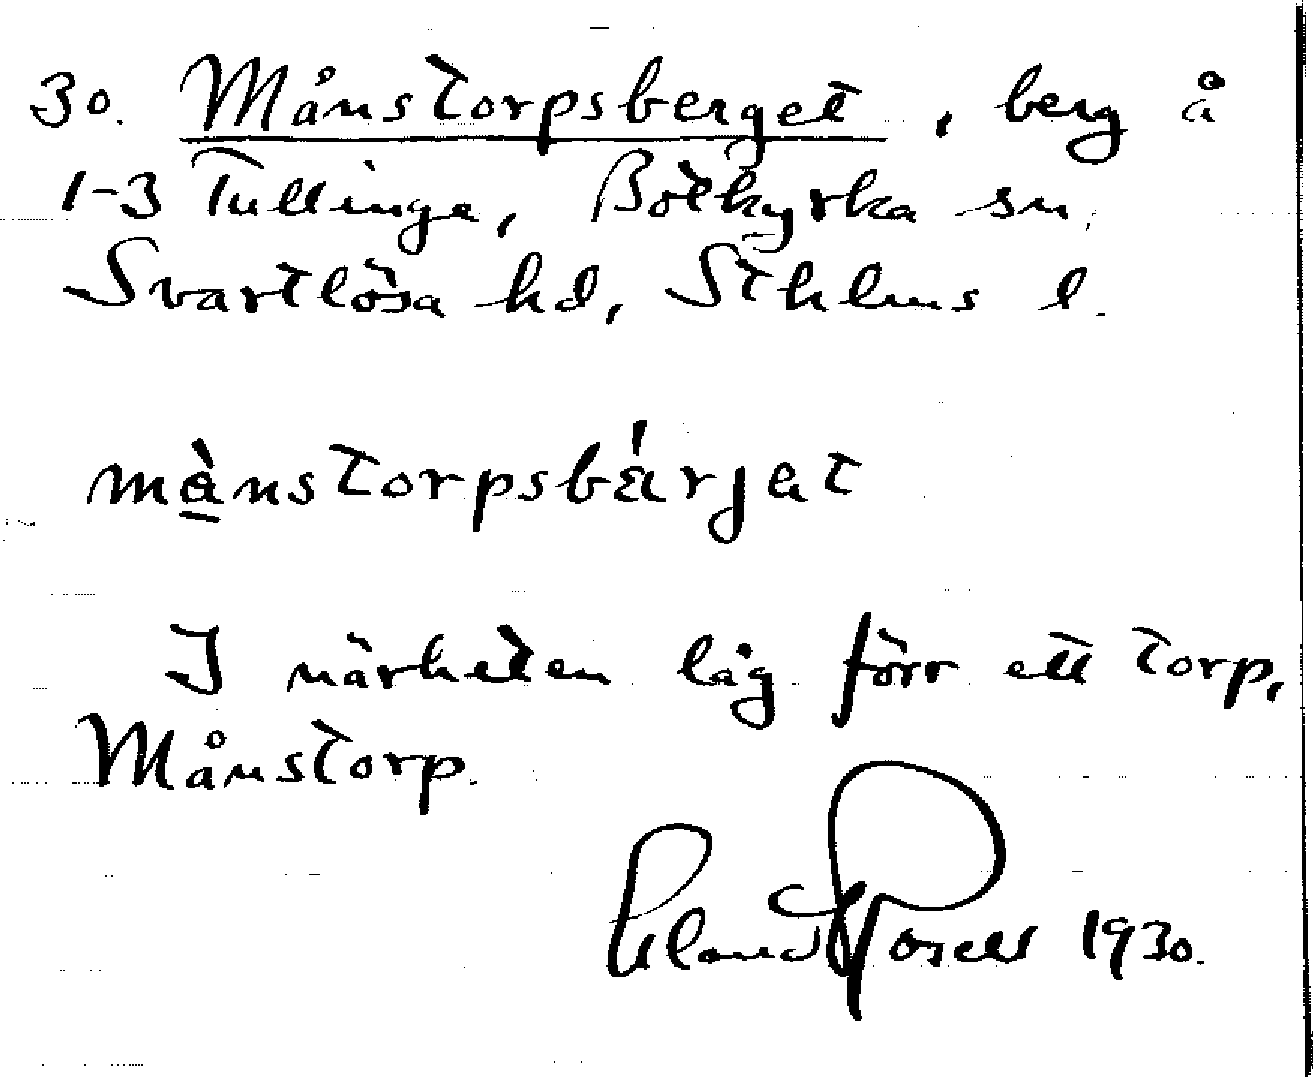 30. Månstorpsberget, berg å
1-3 Tullinge, Botkyrka sn,
Svartlösa hd, Sthlms l.
må̀nstorpsbä́rjet
I närheten låg förr ett torp,
Månstorp.
1930.